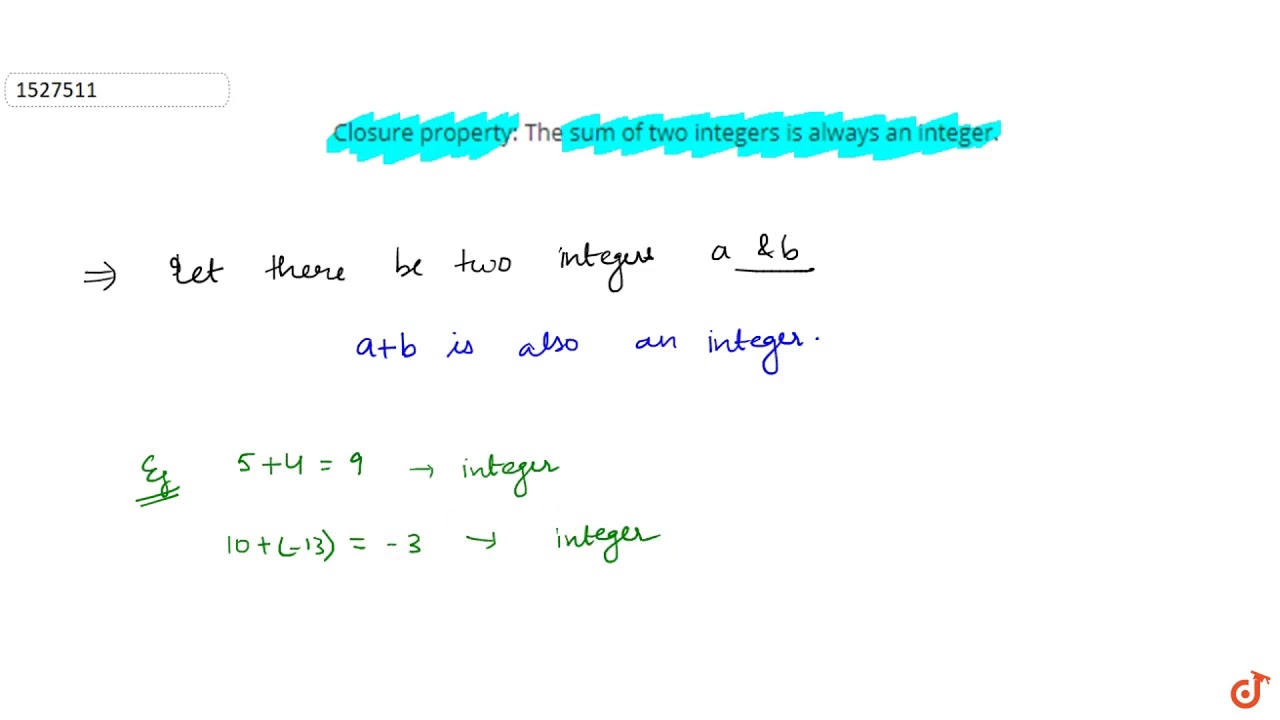 1527511
Closure property: The sum of two integers is always an integer.
⇒ Let there be two integers a & b
a+b is also an integer.
Eg 5+4 = 9 → integer
10+(-13) = -3 → integer